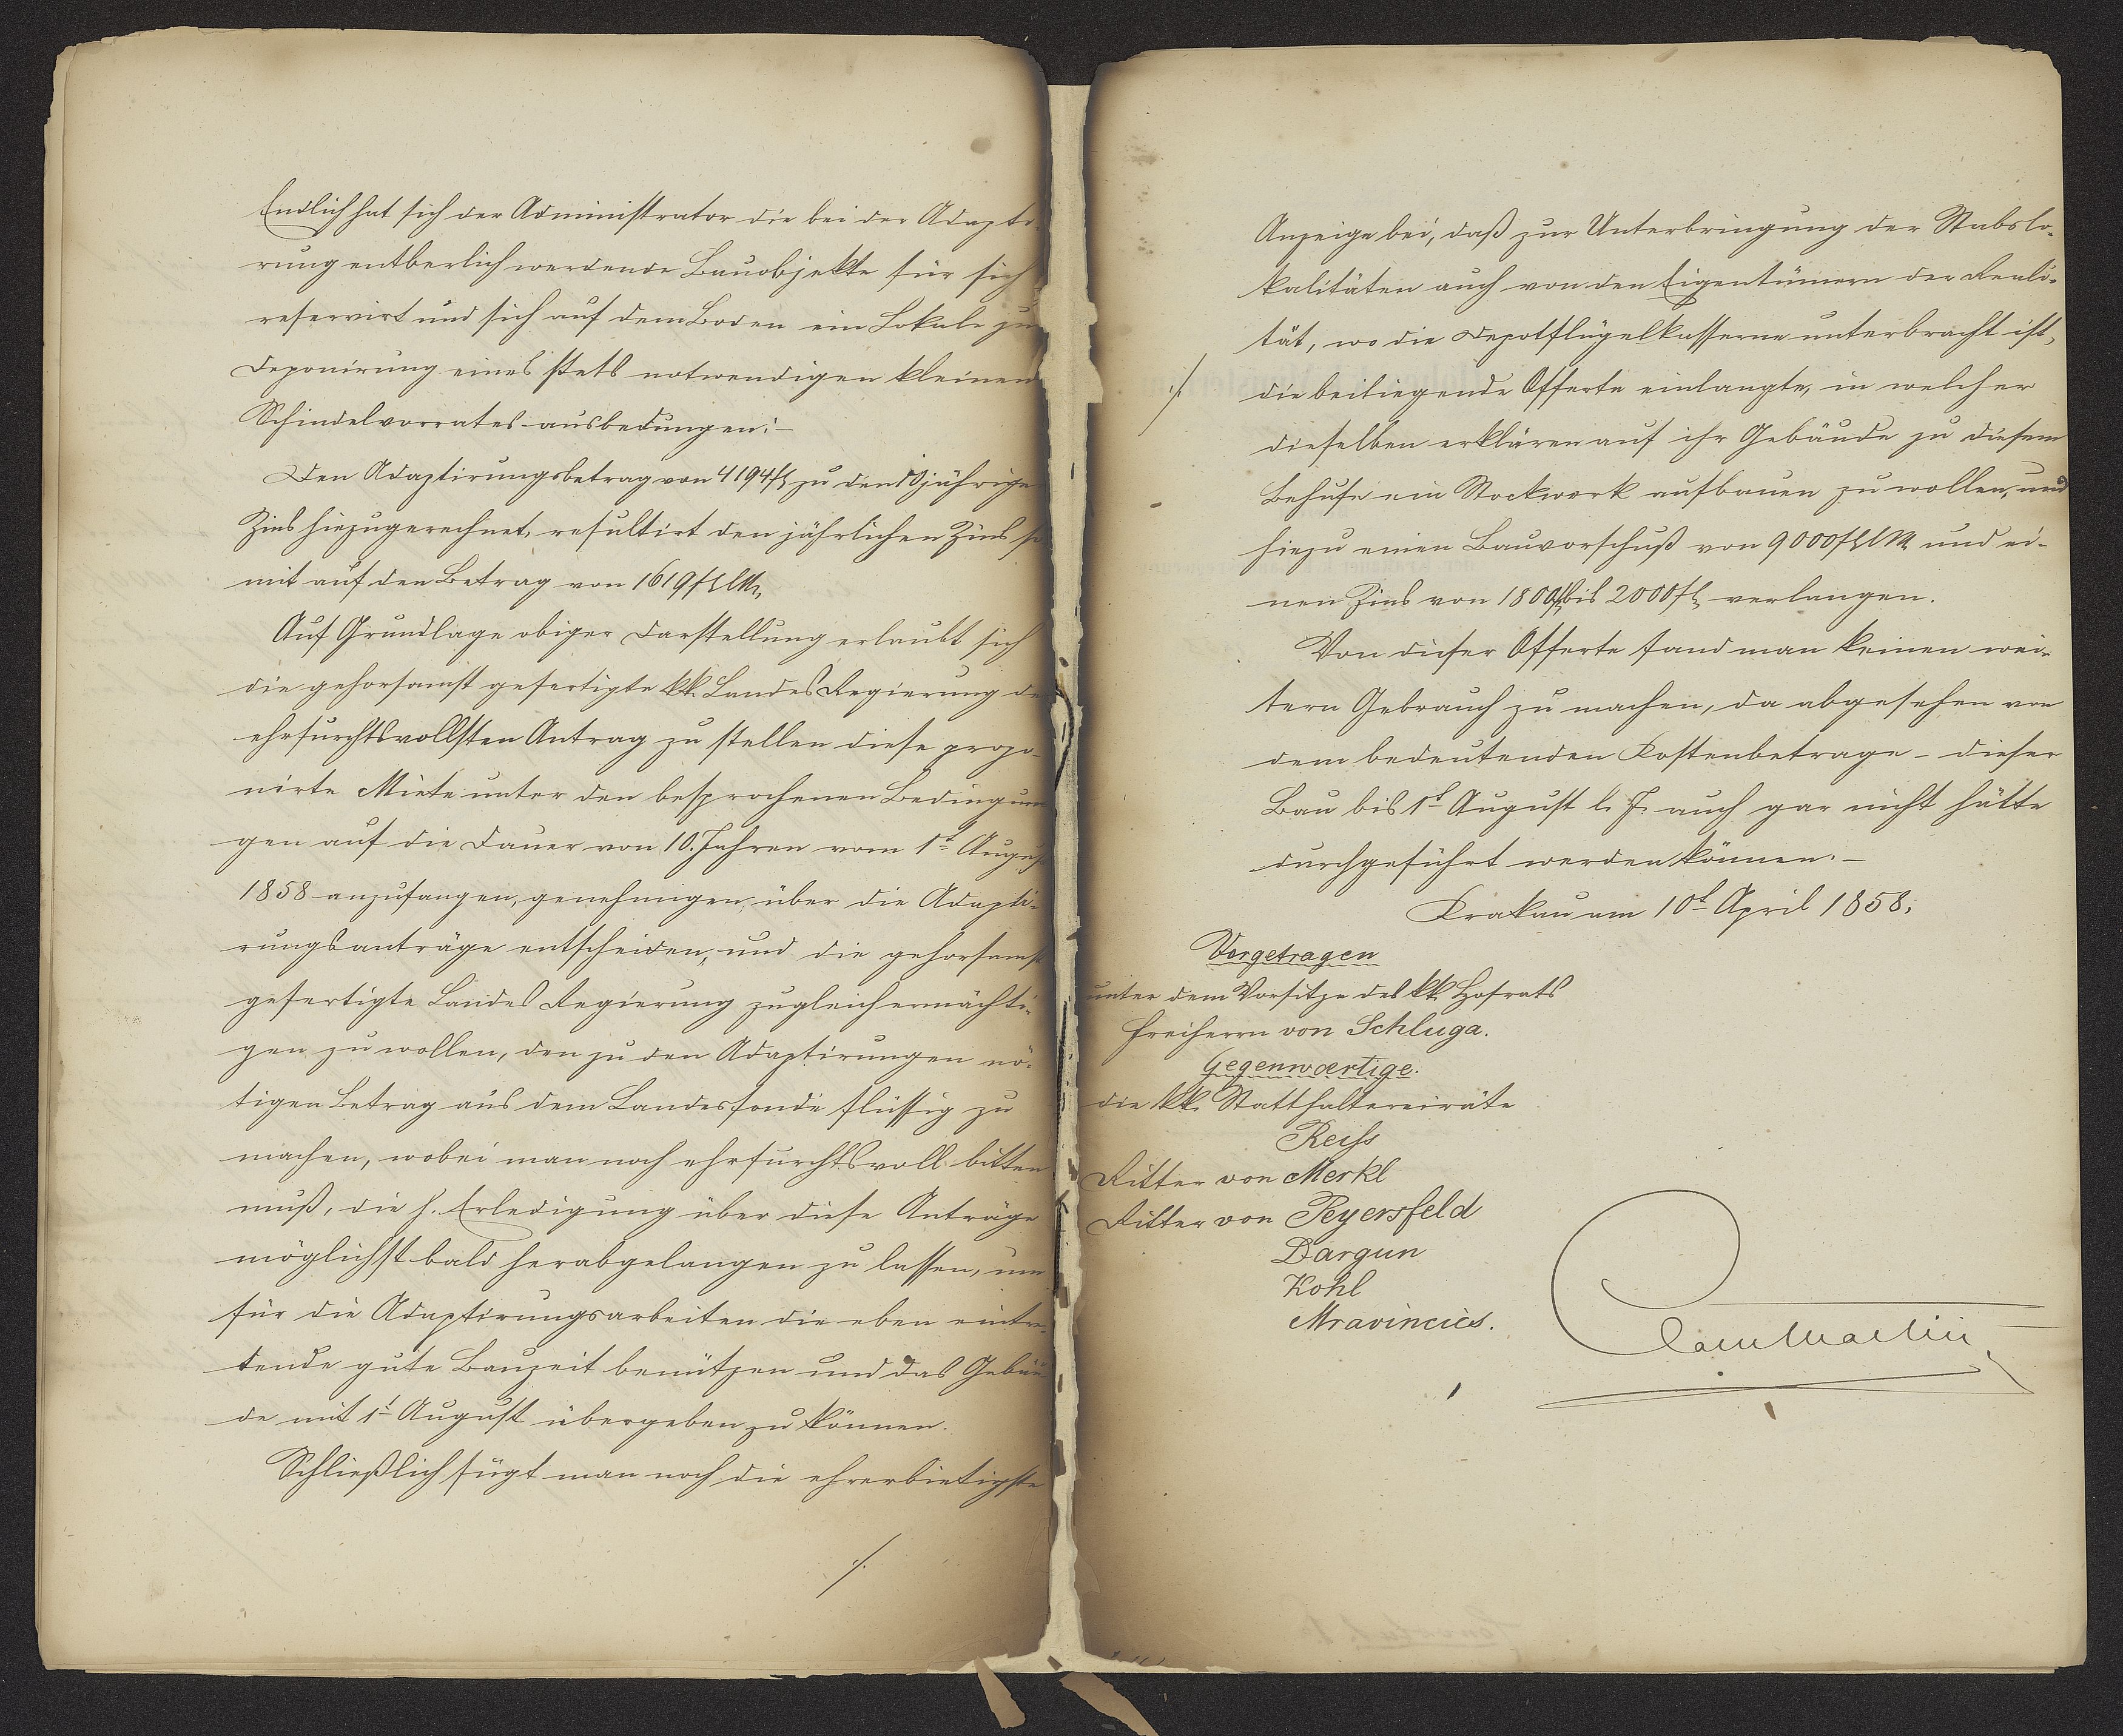 Endlich hat sich der Administrator die bei der Adapti-
rung entberlich werdende Bauobjekte für sich
reservirt und sich auf dem Boden ein Lokale zu
Deponirung eines stets notwendigen kleinen
Schindelvorrates ausbedungen:-
Den Adaptirungsbetrag von 4194 fl zu den 10jährige
Zins hinzugerechnet, resultirt den jährlichen Zins so
mit auf den Betrag von 1619 fl CM.
Auf Grundlage obiger Darstellung erlaubt sich
die gehorsamst gefertigte kk. Landes Regierung de
ehrfurchtsvollsten Antrag zu stellen diese propo-
nirte Miete unter den besprochenen Bedingun
gen auf die Dauer von 10. Jahren vom 1t August
1858 anzufangen, genehmigen, über die Adapti-
rungsanträge entscheiden, und die gehorsamst
gefertigte Landes Regierung zugleich ermächti-
gen zu wollen, den zu den Adaptirungen nö-
tigen Betrag aus dem Landesfonde flüssig zu
machen, wobei man noch ehrfurchtsvoll bitten
muß, die h. Erledigung über diese Anträge
möglichst bald herabgelangen zu lassen, um
für die Adaptirungsarbeiten die eben eintre-
tende gute Bauzeit benützen und das Gebäu
de mit 1t August übergeben zu können.
Schließlich fügt man noch die ehrerbietigste
./.
Anzeige bei, daß zur Unterbringung der Stabslo-
kalitäten auch von den Eigentümern der Reali-
tät, wo die Depotflügelkasserne unterbracht ist,
./.
die beiliegende Offerte einlangte, in welcher
dieselben erklären auf ihr Gebäude zu diesem
Behufe ein Stockwerk aufbauen zu wollen, und
hiezu einen Bauvorschuß von 9000 fl CM und ei-
nen Zins von 1800 fl bis 2000 fl verlangen.
Von dieser Offerte fand man keinen wei-
tern Gebrauch zu machen, da abgesehen von
dem bedeutenden Kostenbetrage - dieser
Bau bis 1t August l. J. auch gar nicht hätte
durchgeführt werden können.-
Krakau am 10t April 1858.
Vorgetragen
unter dem Vorsitze des kk. Hofrats
Freiherrn von Schluga.
Gegenwaertige.
die kk. Statthaltereiräte
Reiss
Ritter von Merkl
Ritter von Peyersfeld
Dargun
Kohl
Mravincics.
Clam Martin